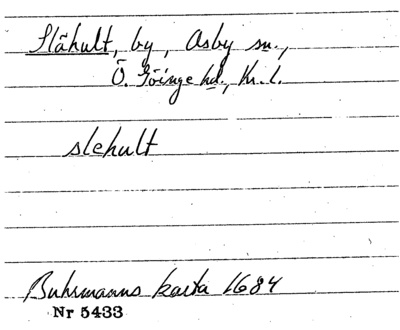 Slähult, by, Asby sn.,
Ö. Göinge hd., Kr. l.
slehult
Buhrmanns karta 1684
Nr 5433